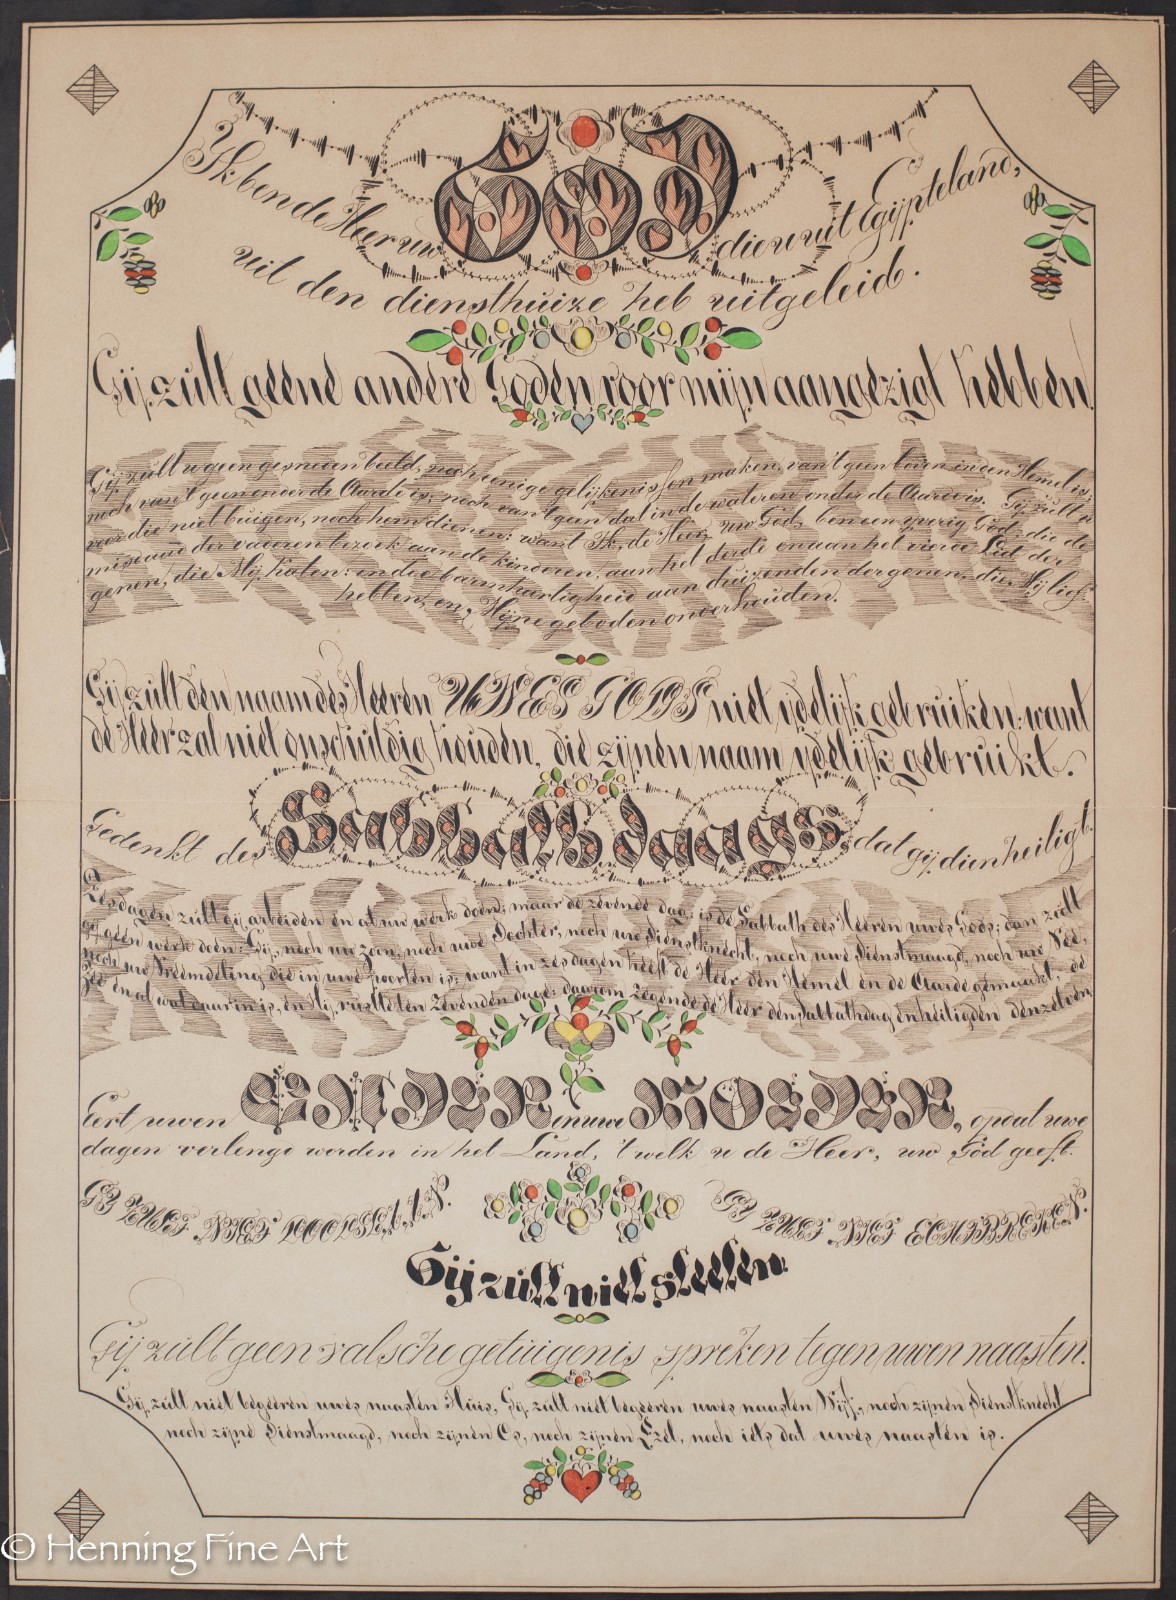 Ik ben de Heer uw God, die u uit Egÿpteland,
uit den diensthuize heb uitgeleid.
Gij zult geene andere Goden voor mijn aangezigt hebben.
Gij zult u geen gesneden beeld, noch eenige gelijkenissen maken, van 't geen boven in den Hemel is;
noch van 't geen onder de Aarde is; noch van 't geen dat in de wateren onder de Aarde is. Gij zult u
voor die niet buigen, noch hem dienen: want Ik, de Heer uw God, ben een yverig God, die de
misdaad der vaderen bezoek aan de kinderen, aan het derde en aan het vierde Lid der
genen, die Mij haten: en doe barmhartigheid aan duizenden der genen, die Mij lief-
hebben, en Mijne geboden onderhouden.
Gij zult den naam des Heeren UWES GODS niet ydelijk gebruiken: want
de Heer zal niet onschuldig houden, die zijnen naam ydelijk gebruikt.
Gedenkt des Sabbath daags, dat gij dien heiligt.
Zes dagen zult gij arbeiden en al uw werk doen; maar de zevende dag is de Sabbath des Heeren uwes Gods; dan zult
gij geen werk doen: Gij, noch uw zoon, noch uwe Dochter, noch uw Dienstknecht, noch uwe Dienstmaagd, noch uw Vee,
noch uw Vreemdeling die in uwe poorten is; want in zes dagen heeft de Heer den Hemel en de Aarde gemaakt, de
Zee en al wat daar in is, en Hij rustte ten Zevenden dage: daarom zegende de Heer den Sabbathdag en heiligden denzelven
Eert uwen VADER en uwe MOEDER, opdat uwe
dagen verlengd worden in het Land, 't welk u de Heer, uw God geeft.
GY ZULT NIET DOODSLAAN.
GY ZULT NIET ECHTBREKEN.
Gij zult niet stelen.
Gij zult geen valsche getuigenis spreken tegen uwen naasten.
Gij zult niet begeeren uwes naasten Huis, Gij zult niet begeeren uwes naasten Wijf, noch zijnen Dienstknecht
noch zijne Dienstmaagd, noch zijnen Os, noch zijnen Ezel, noch iets dat uwes naasten is.
© Henning Fine Art